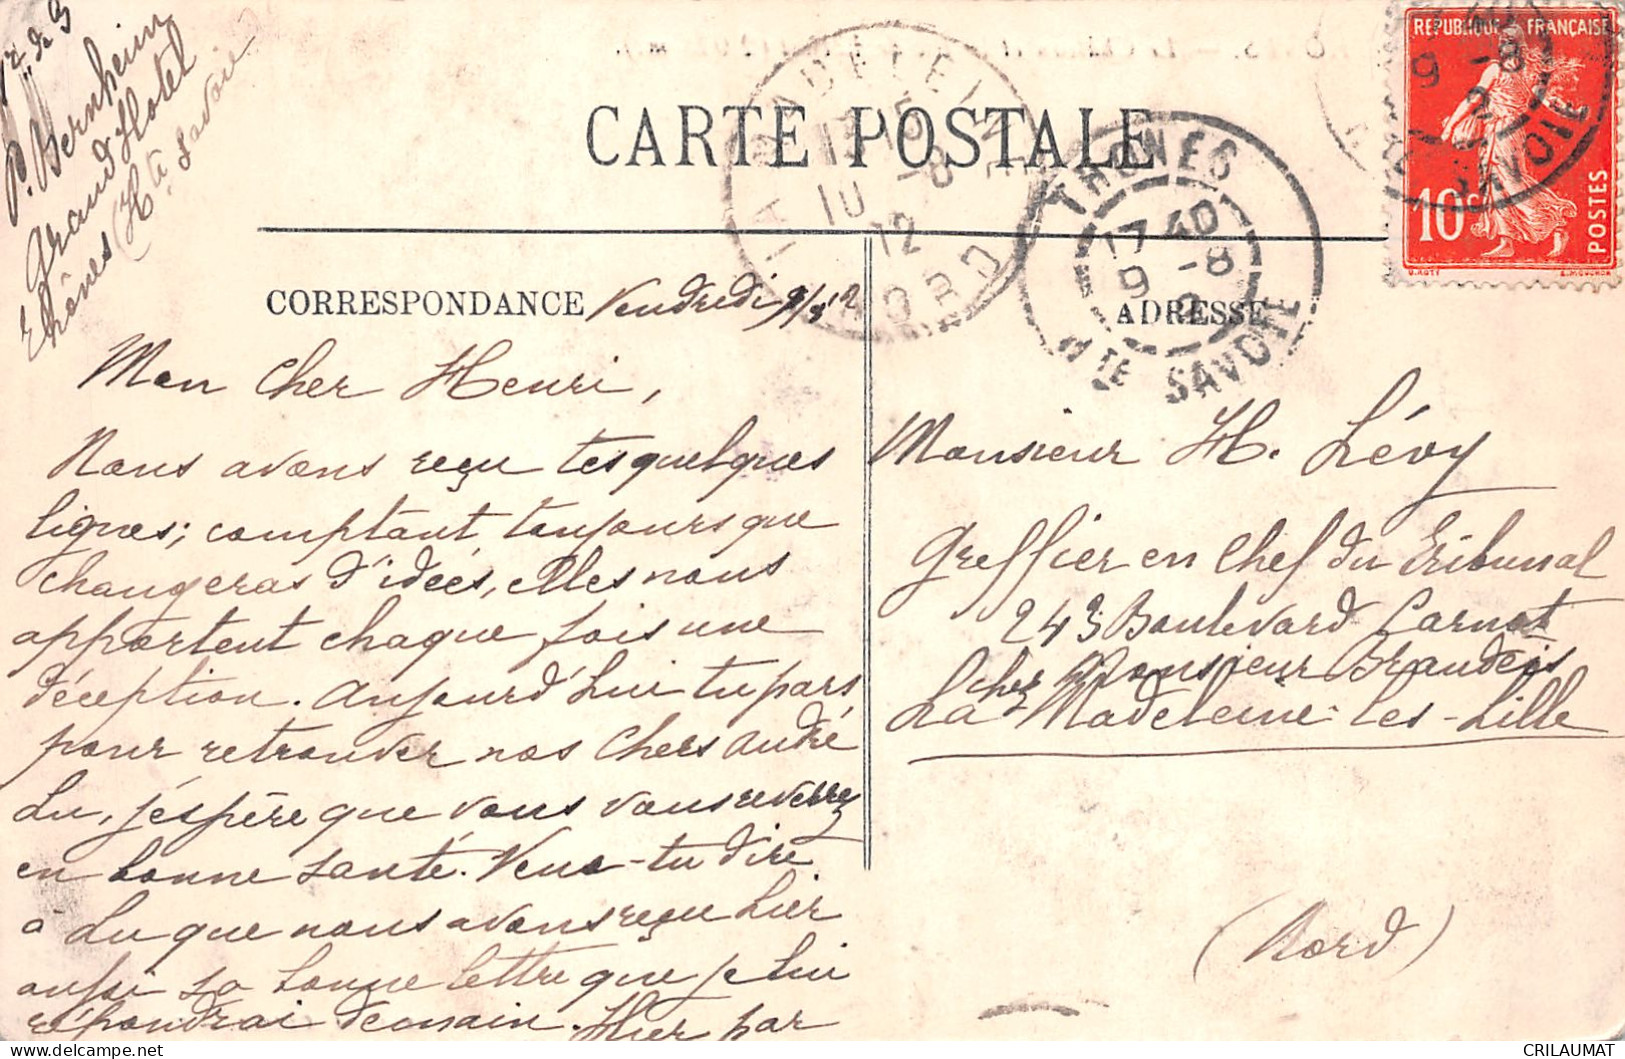 P. Bernheim
Grand Hotel
Thônes (Hte Savoie)
CARTE POSTALE
REPUBLIQUE FRANÇAISE
10c
POSTES
LA MADELEINE
NORD
10 -8
12
THONES
17 40
9 -8
Hte SAVOIE
9 -8
SAVOIE
CORRESPONDANCE
Vendredi 9/8 12
Mon cher Henri,
Nous avons reçu tes quelques
lignes; comptant toujours que
changeras d'idées, elles nous
apportent chaque fois une
déception. Aujourd'hui tu pars
pour retrouver nos chers André
Lu, j'espère que vous vous reverrez
en bonne santé. Veux-tu dire
à Lu que nous avons reçu hier
aussi sa bonne lettre que je lui
répondrai demain. Hier par
ADRESSE
Monsieur H. Lévy
Greffier en Chef du Tribunal
243 Boulevard Carnot
chez Monsieur Brandeis
La Madeleine-les-Lille
(Nord)
CRILAUMAT